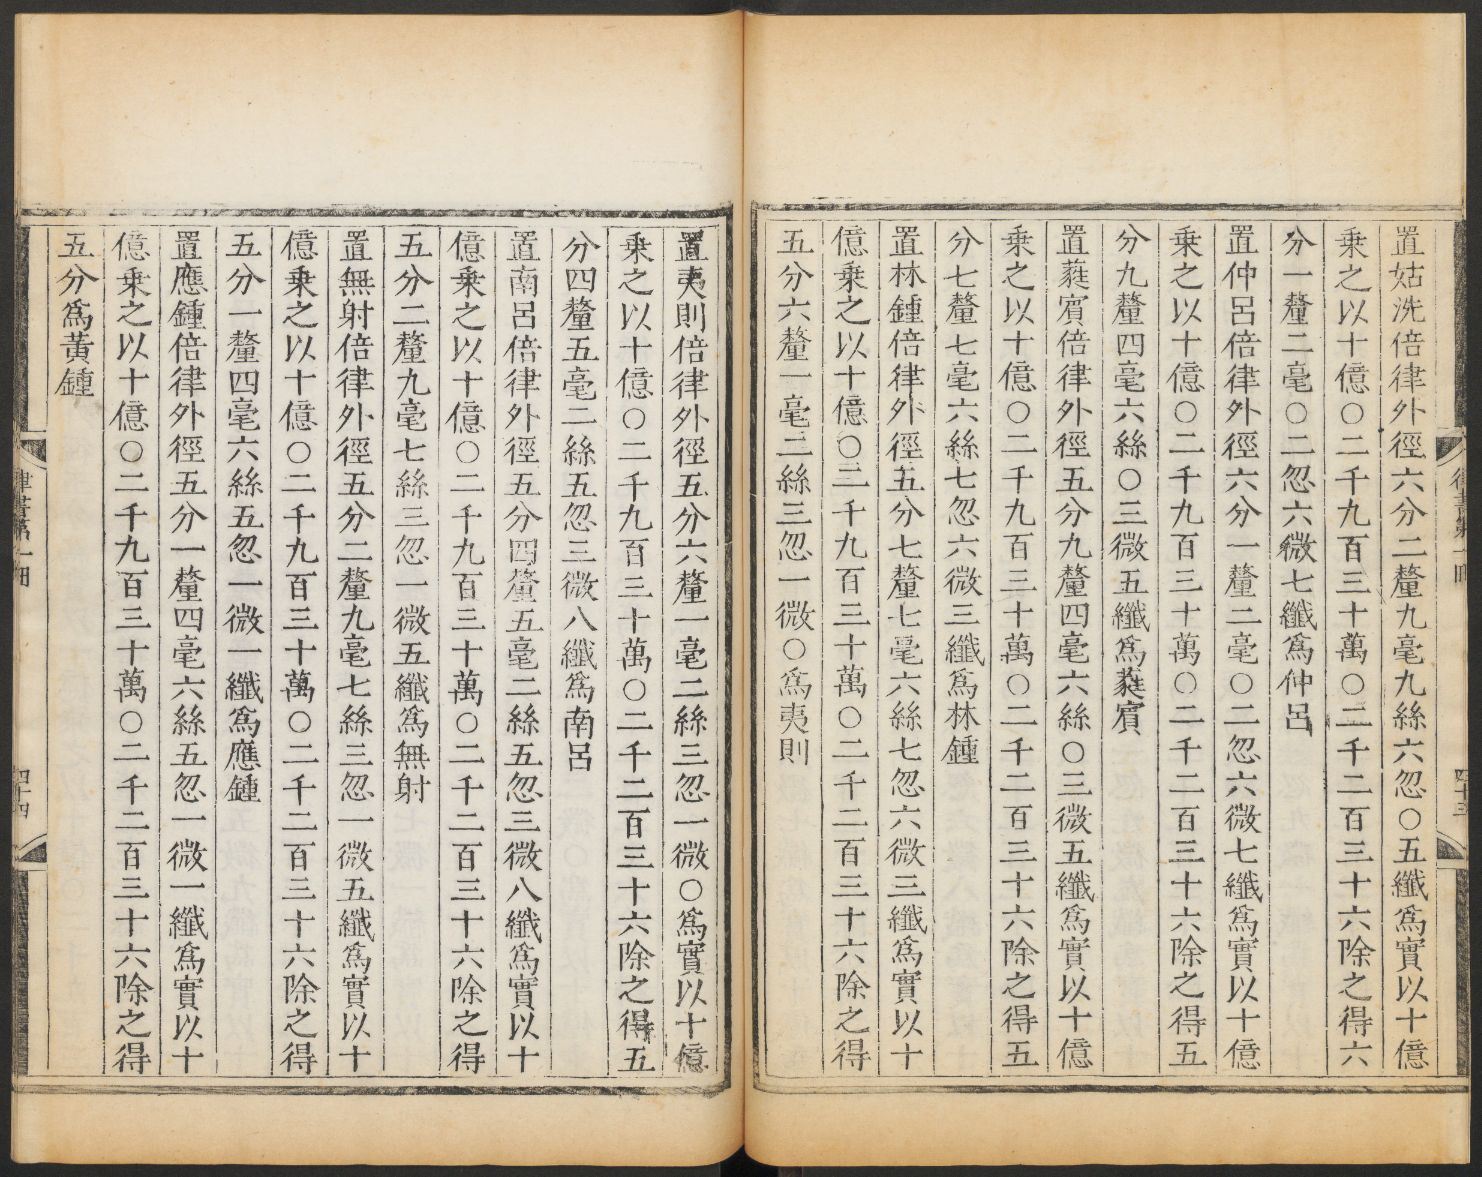 置姑洗倍律外徑六分二釐九毫九絲六忽〇五纖爲實以十億
乘之以十億〇二千九百三十萬〇二千二百三十六除之得六
分一釐二毫〇二忽六微七纖爲仲呂
置仲呂倍律外徑六分一釐二毫〇二忽六微七纖爲實以十億
乘之以十億〇二千九百三十萬〇二千二百三十六除之得五
分九釐四毫六絲〇三微五纖爲蕤賓
置蕤賓倍律外徑五分九釐四毫六絲〇三微五纖爲實以十億
乘之以十億〇二千九百三十萬〇二千二百三十六除之得五
分七釐七毫六絲七忽六微三纖爲林鍾
置林鍾倍律外徑五分七釐七毫六絲七忽六微三纖爲實以十
億乘之以十億〇二千九百三十萬〇二千二百三十六除之得
五分六釐一毫二絲三忽一微〇爲夷則
律書第一冊
四十三
置夷則倍律外徑五分六釐一毫二絲三忽一微〇爲實以十億
乘之以十億〇二千九百三十萬〇二千二百三十六除之得五
分四釐五毫二絲五忽三微八纖爲南呂
置南呂倍律外徑五分四釐五毫二絲五忽三微八纖爲實以十
億乘之以十億〇二千九百三十萬〇二千二百三十六除之得
五分二釐九毫七絲三忽一微五纖爲無射
置無射倍律外徑五分二釐九毫七絲三忽一微五纖爲實以十
億乘之以十億〇二千九百三十萬〇二千二百三十六除之得
五分一釐四毫六絲五忽一微一纖爲應鍾
置應鍾倍律外徑五分一釐四毫六絲五忽一微一纖爲實以十
億乘之以十億〇二千九百三十萬〇二千二百三十六除之得
五分爲黃鍾
律書第一冊
四十四